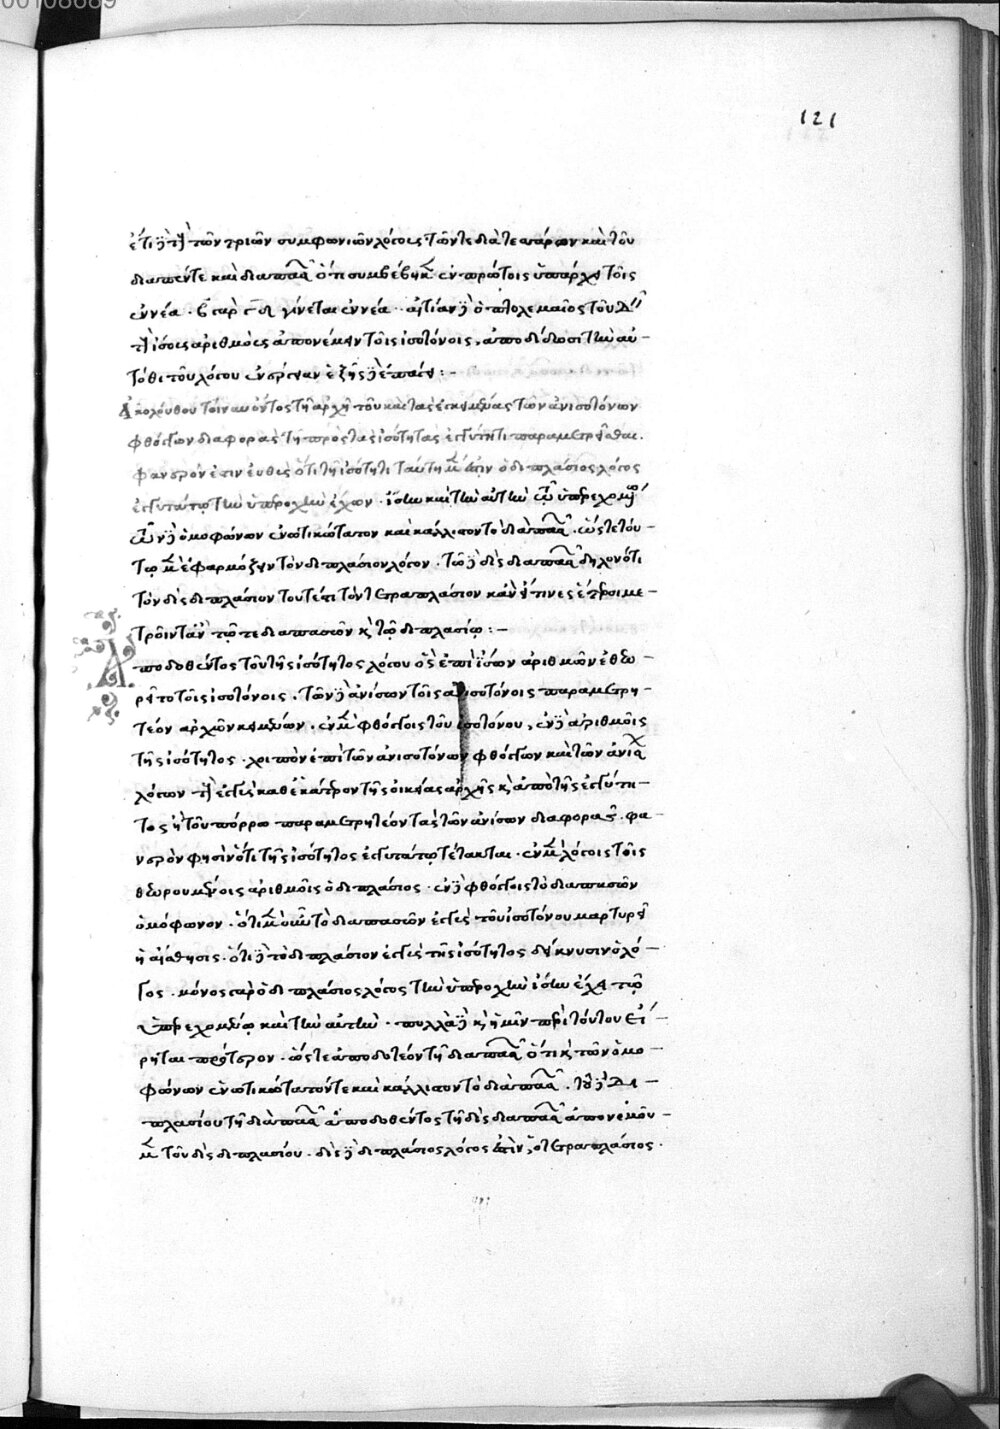 00108689
121
ἔτι δὲ τοῖς τῶν τριῶν συμφωνιῶν λόγοις τῶν τε διὰ τεσσάρων καὶ τοῦ
διαπέντε καὶ διαπασῶν ὅτι συμβέβηκεν ἐν πρώτοις ὑπάρχειν τοῖς
ἐννέα · γίνεται ἐννέα · αἰτίαν δὲ ὁ πτολεμαῖος τοῦ δεῖν
τοὺς ἴσους ἀριθμοὺς ἀπονέμειν τοῖς ἰσοτόνοις, ἀποδίδωσι τὴν αὐ-
τόθι τοῦ λόγου ἐνάργειαν ἑξῆς δὲ ἐπάγει :-
Ἀκολούθου τοίνυν ὄντος τῇ ἀρχῇ τοῦ καὶ τὰς ἐκκειμένας τῶν ἀνισοτόνων
φθόγγων διαφορὰς τῇ πρὸς τὰς ἰσότητας ἐγγύτητι παραμετρεῖσθαι.
φανερόν ἐστιν εὐθὺς ὅτι τῇ ἰσότητι ταύτῃ μέν ἐστιν ὁ διπλάσιος λόγος
ἐγγυτάτω τὴν ὑπεροχὴν ἔχων · ἴσην καὶ τὴν αὐτὴν τῷ ὑπερεχομένῳ
τῶν δὲ ὁμοφώνων ἑνωτικώτατον καὶ κάλλιστον τὸ διαπασῶν · ὥστε τού-
τῳ μὲν ἐφαρμόζειν τὸν διπλάσιον λόγον · τῷ δὲ δὶς διαπασῶν δηλονότι
τὸν δὶς διπλάσιον τουτέστι τὸν τετραπλάσιον κἂν εἴ τινες ἕτεροι με-
τροῖντ᾽ ἂν τῷ τε διαπασῶν καὶ τῷ διπλασίῳ :-
Ἀποδοθέντος τοῦ τῆς ἰσότητος λόγου ὃς ἐπὶ ἴσων ἀριθμῶν ἐθεω-
ρεῖτο τοῖς ἰσοτόνοις · τῶν δὲ ἀνίσων τοῖς ἀνισοτόνοις παραμετρη-
τέον ἀρχῶν κειμένων · ἐν μὲν φθόγγοις τοῦ ἰσοτόνου, ἐν δὲ ἀριθμοῖς
τῆς ἰσότητος · λοιπὸν ἐπὶ τῶν ἀνισοτόνων φθόγγων καὶ τῶν ἀνίσων
λόγων τοῖς ἐγγὺς καθ᾽ ἑκάτερον τῆς οἰκείας ἀρχῆς καὶ ἀπὸ τῆς ἐγγύτη-
τος ἢ τοῦ πόρρω παραμετρητέον τὰς τῶν ἀνίσων διαφοράς · φα-
νερὸν φησὶν ὅτι τῆς ἰσότητος ἐγγυτάτω τέτακται · ἐν μὲν λόγοις τοῖς
θεωρουμένοις ἀριθμοῖς ὁ διπλάσιος · ἐν δὲ φθόγγοις τὸ διαπασῶν
ὁμόφωνον · ὅτι μὲν οὖν τὸ διαπασῶν ἐγγὺς τοῦ ἰσοτόνου μαρτυρεῖ
ἡ αἴσθησις · ὅτι δὲ τὸ διπλάσιον ἐγγὺς τῆς ἰσότητος δείκνυσιν ὁ λό-
γος · μόνος γὰρ ὁ διπλάσιος λόγος τὴν ὑπεροχὴν ἴσην ἔχει τῷ
ὑπερεχομένῳ καὶ τὴν αὐτὴν · πολλὰ δὲ καὶ ἡμῖν περὶ τούτου εἴ-
ρηται πρότερον · ὥστε ἀποδοτέον τῇ διαπασῶν ὅτι καὶ τῶν ὁμο-
φώνων ἑνωτικώτατόν τε καὶ κάλλιστον τὸ διαπασῶν · τοῦ δὲ δι-
πλασίου τῇ διαπασῶν ἀποδοθέντος τῇ δὶς διαπασῶν ἀπονεμοῦ-
μεν τὸν δὶς διπλασίου · δὶς δὲ διπλάσιος λόγος ἐστὶν, ὁ τετραπλάσιος ·